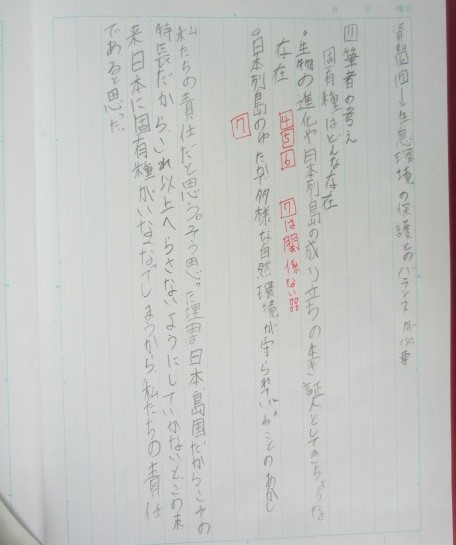 資料四→生息環境の保護とのバランスが必要
11 筆者の考え
固有種はどんな存在
・生物の進化や日本列島の成り立ちの生き証人としてきちょうな
存在 4 5 6 7は関係ない??
・日本列島のゆたかで多様な自然環境が守られていることのあかし
7
私たちの責任だと思う。そう思った理由は日本島国だからこその
特長だから、これ以上へらさないようにしていかないと、この未
来、日本に固有種がいなくなってしまうから、私たちの責任
であると思った。